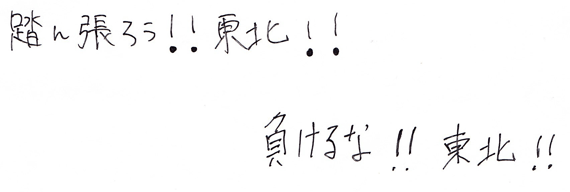 踏ん張ろう!!東北!!
負けるな!!東北!!